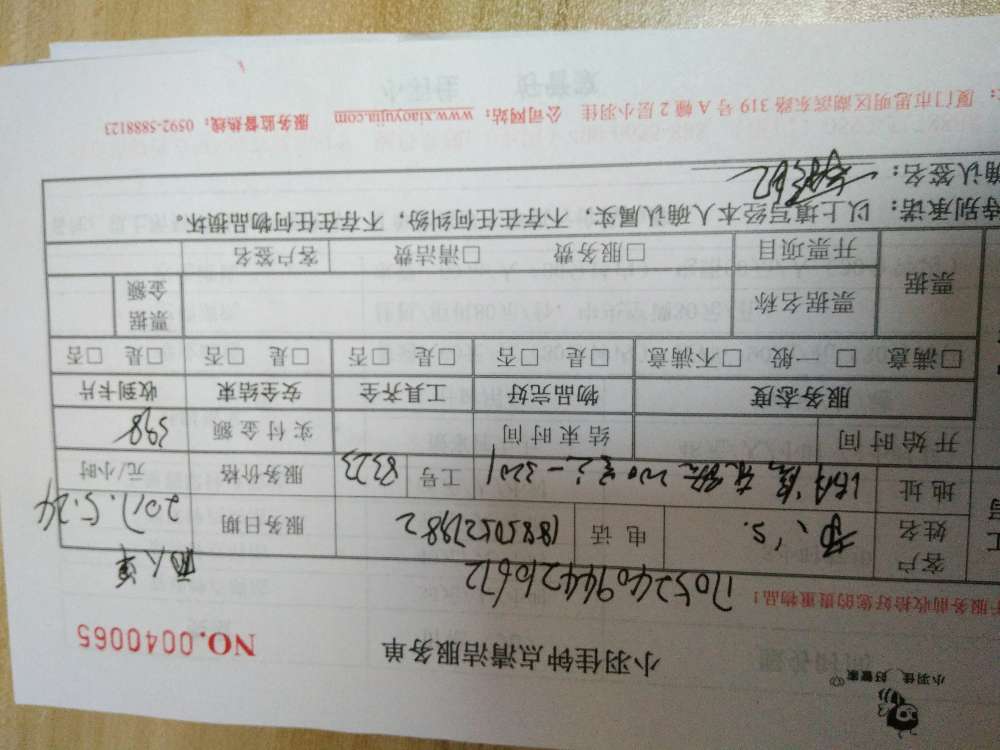 小羽佳 好管家
小羽佳钟点清洁服务单
NO.0040065
服务前收拾好您的贵重物品！
170524094426612
两人单
客户姓名
电话
18850522982
服务日期
2017.5.24
地址
工号
8323
服务价格
元/小时
开始时间
结束时间
实付金额
398
服务态度
物品完好
工具齐全
安全结束
收到卡片
□满意 □一般 □不满意
□是 □否
□是 □否
□是 □否
□是 □否
票据
票据名称
票据金额
开票项目
□服务费 □清洁费
客户签名
特别承诺：以上填写经本人确认属实，不存在任何纠纷，不存在任何物品损坏。
确认签名：
厦门市思明区湖滨东路 319 号 A 幢 2 层小羽佳 公司网站：www.xiaoyujia.com 服务监督热线：0592-5888123